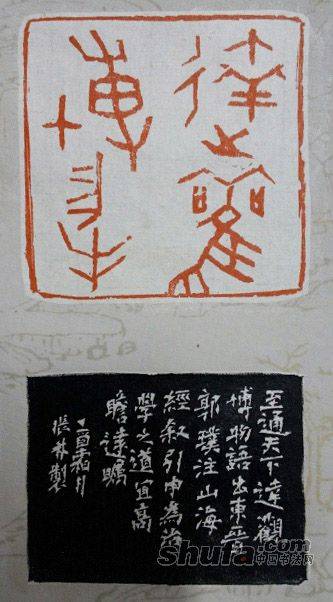 達觀
博物
至通天下達觀
博物語出東晉
郭璞注山海
經叙引申為治
學之道宜高
瞻遠矚
丁酉霜月
林製
shufa.com
中国书法网